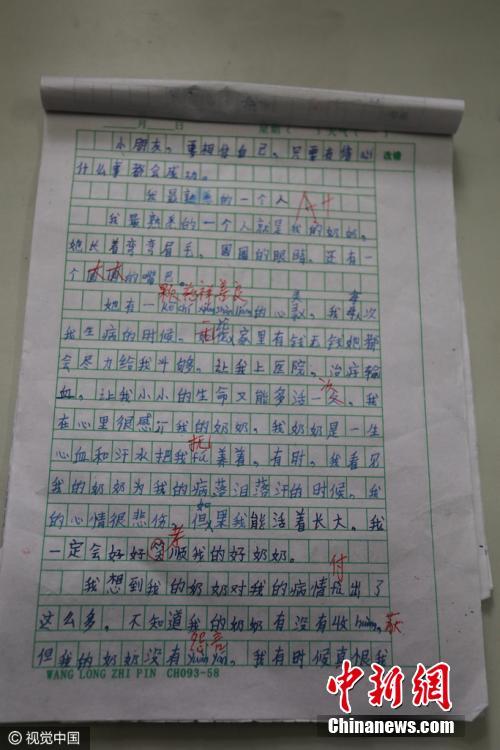 月 日 星期( ) 天气( )
小朋友。要相信自己。只要有信心 改错
什么事都会成功。
我最熟悉的一个人 A+
我最熟悉的一个人就是我的奶奶。
她长着弯弯眉毛。圆圆的眼睛。还有一
个大大的嘴巴。
颗慈祥善良
她有一 的心灵。我每次
我生病的时候。 家里有钱无钱她都
会尽力给我斗够。让我上医院。治疗输
血。让我小小的生命又能多活一次。我
在心里很感订我的奶奶。我奶奶是一生
抚
心血和汗水把我fu养着。有时。我看见
我的奶奶为我的病落泪落汗的时候。我
的心情很悲伤。但如果我能活着长大。我
孝
一定会好好 顺我的好奶奶。
付
我想到我的奶奶对我的病情 出了
这么多。不知道我的奶奶有没有收 获
怨言
但我的奶奶没有yuàn yán。我有时候真恨我
WANG LONG ZHI PIN CH093-58
中新网
Chinanews.com
© 视觉中国